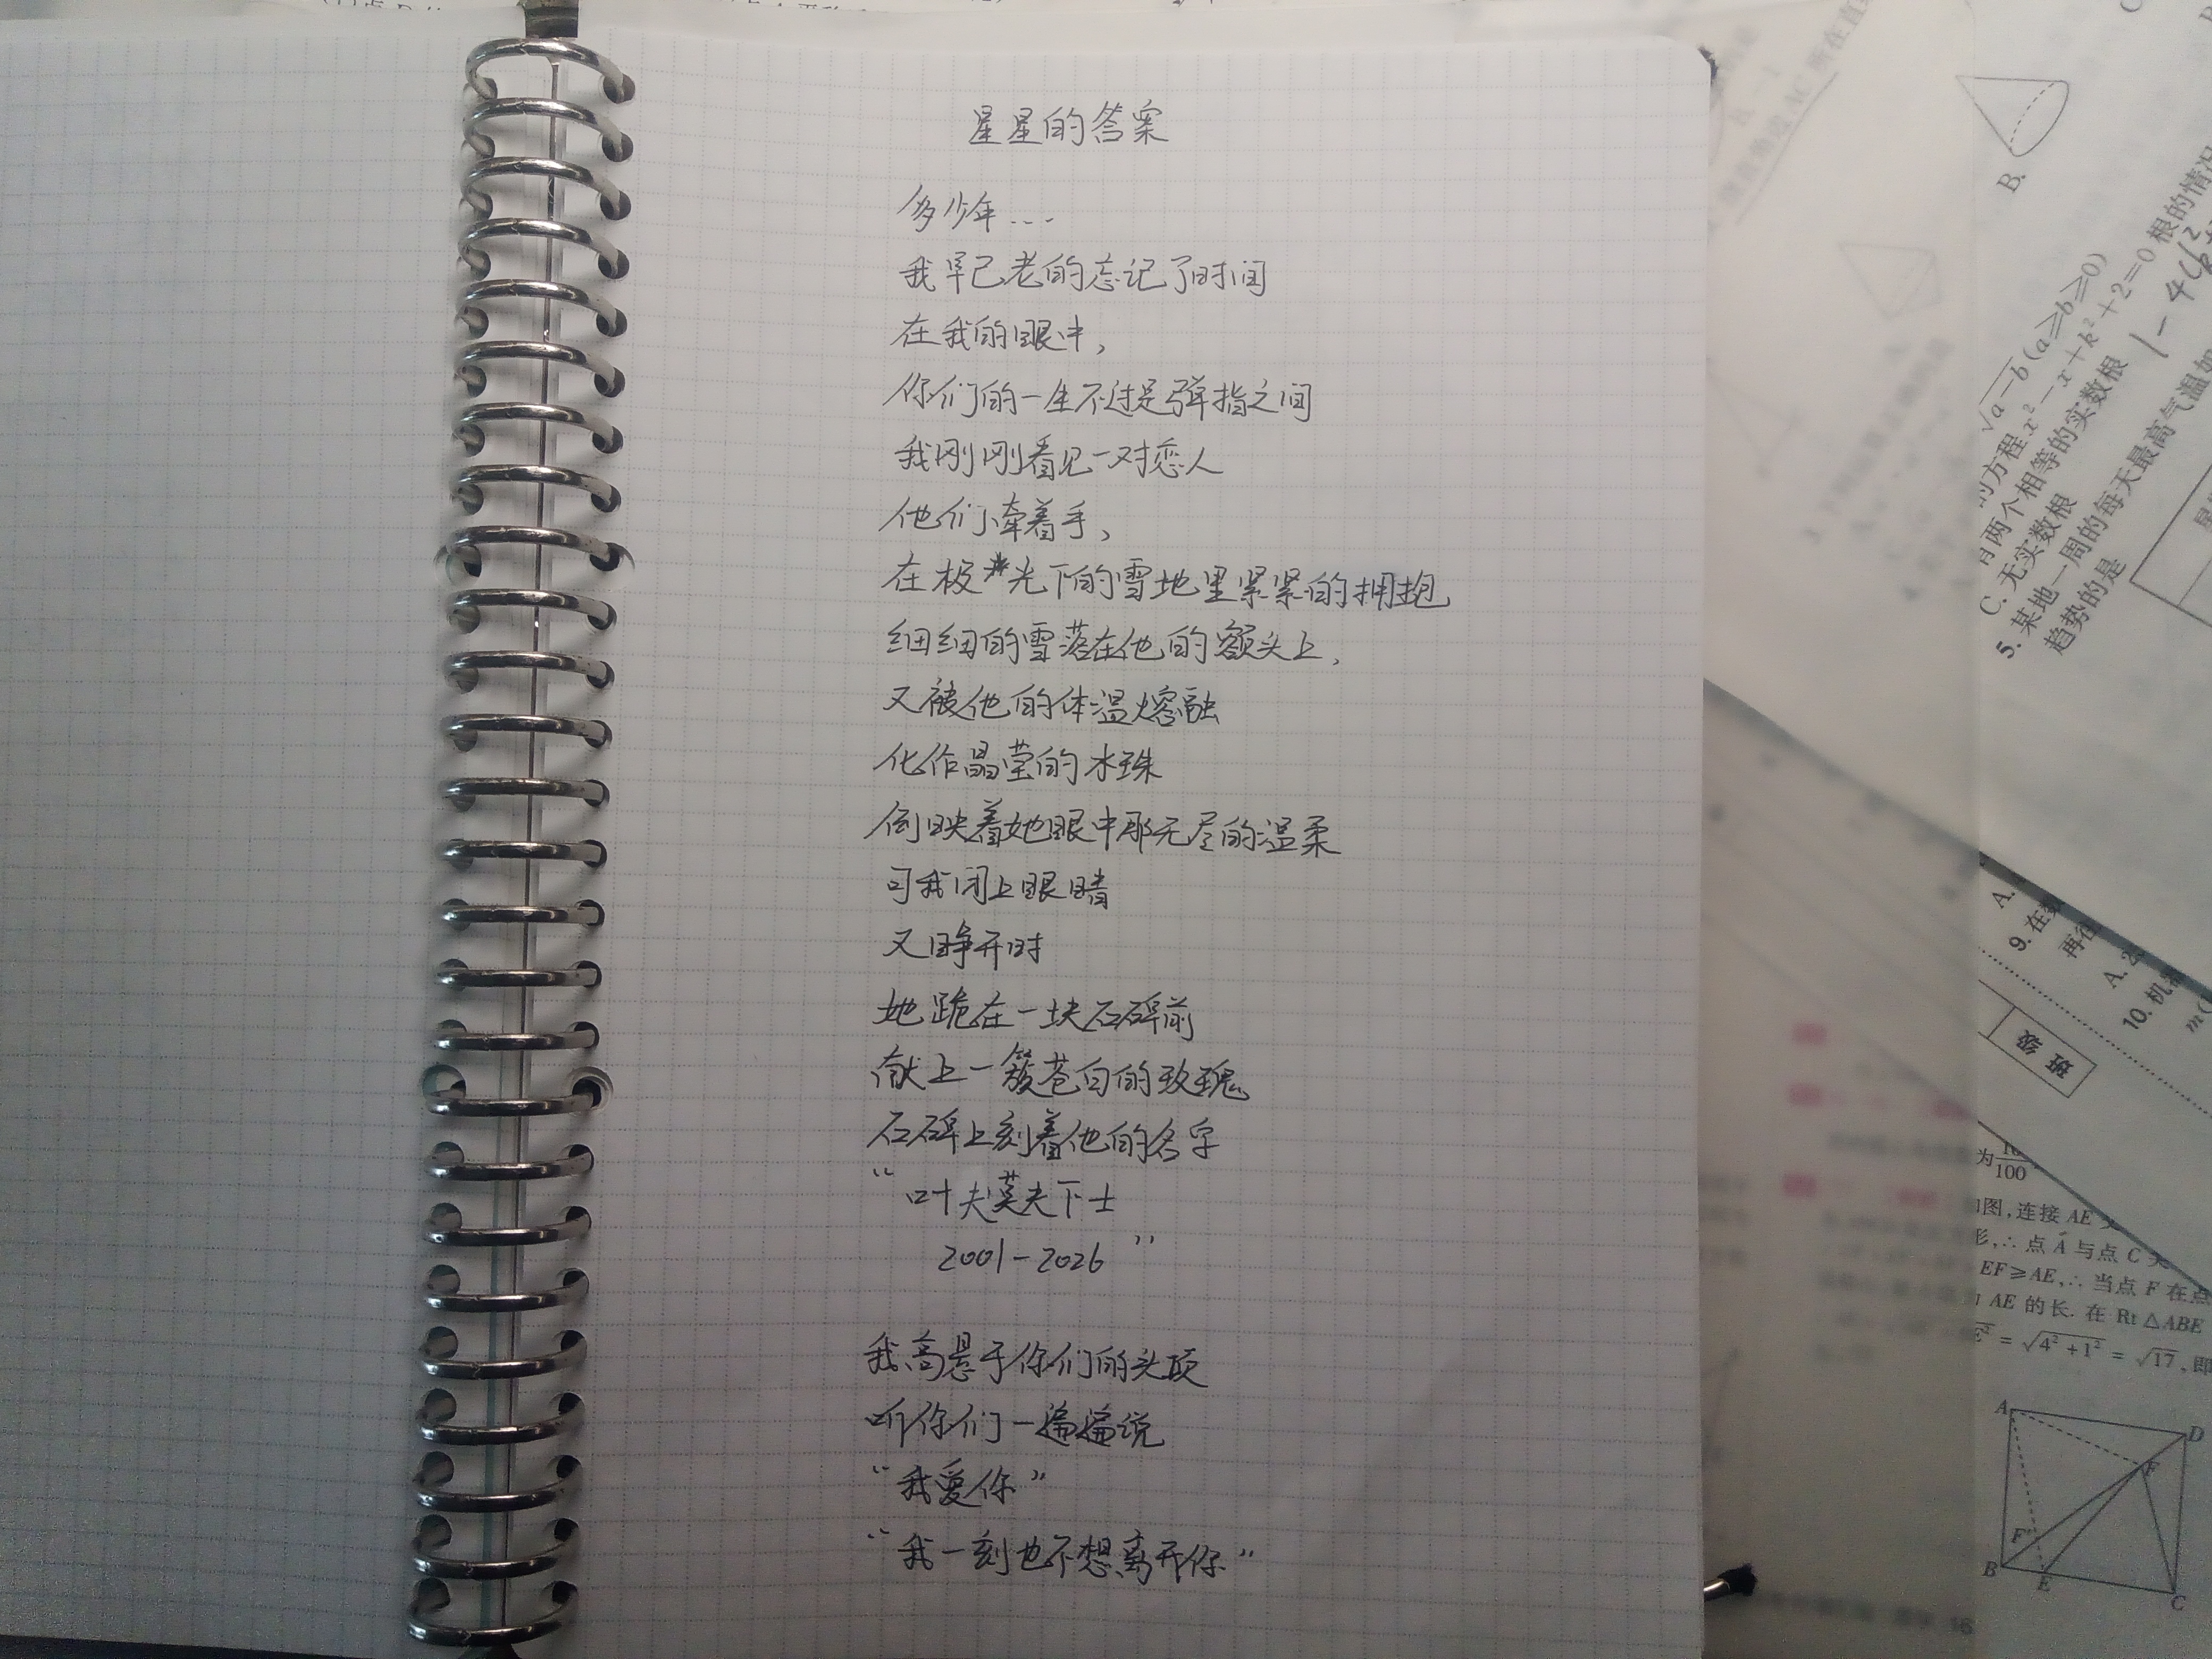 星星的答案
多少年...
我早已老的忘记了时间
在我的眼中,
你们的一生不过是弹指之间
我刚刚看见一对恋人
他们牵着手,
在极光下的雪地里紧紧的拥抱
细细的雪落在他的额头上,
又被他的体温熔融
化作晶莹的水珠
倒映着她眼中那无尽的温柔
可我闭上眼睛
又睁开时
她跪在一块石碑前
献上一簇苍白的玫瑰
石碑上刻着他的名字
“叶夫莫夫下士
2001-2026”
我高悬于你们的头顶
听你们一遍遍说
“我爱你”
“我一刻也不想离开你”
B.
√a-b(a≥b≥0)
的方程x²-x+k²+2=0根的情况
有两个相等的实数根
C. 无实数根
5. 某地一周的每天最高气温如
趋势的是
1-4(k²
A.
9. 在数
再往
A. 2
10. 机
m(
班级
为
100
图,连接 AE
形,∴点 A 与点 C 关
EF≥AE,∴当点 F 在点
AE 的长. 在 Rt△ABE
=√4²+1²=√17,即
A
D
F
F'
B
E
C
16